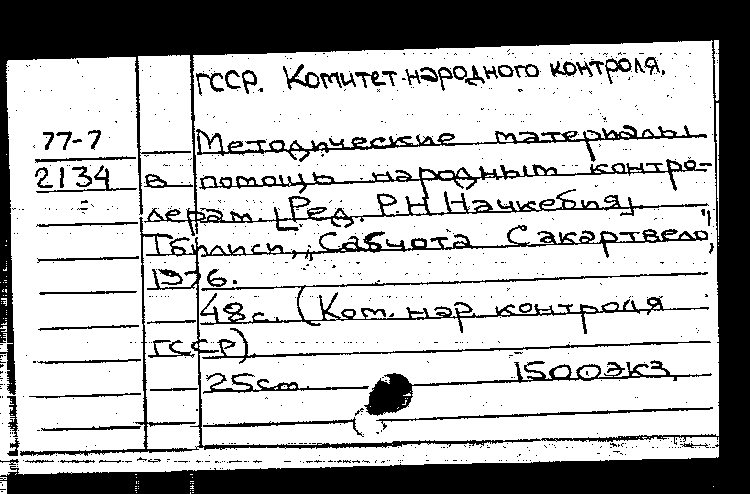 ГССР. Комитет народного контроля.
77-7 Методические материалы
2134 в помощь народным контро-
лерам. [Ред. Р.Н Начкебия].
Тбилиси, „Сабчота Сакартвело",
1976.
48с. (Ком. нар. контроля
ГССР)
25см 1500экз.